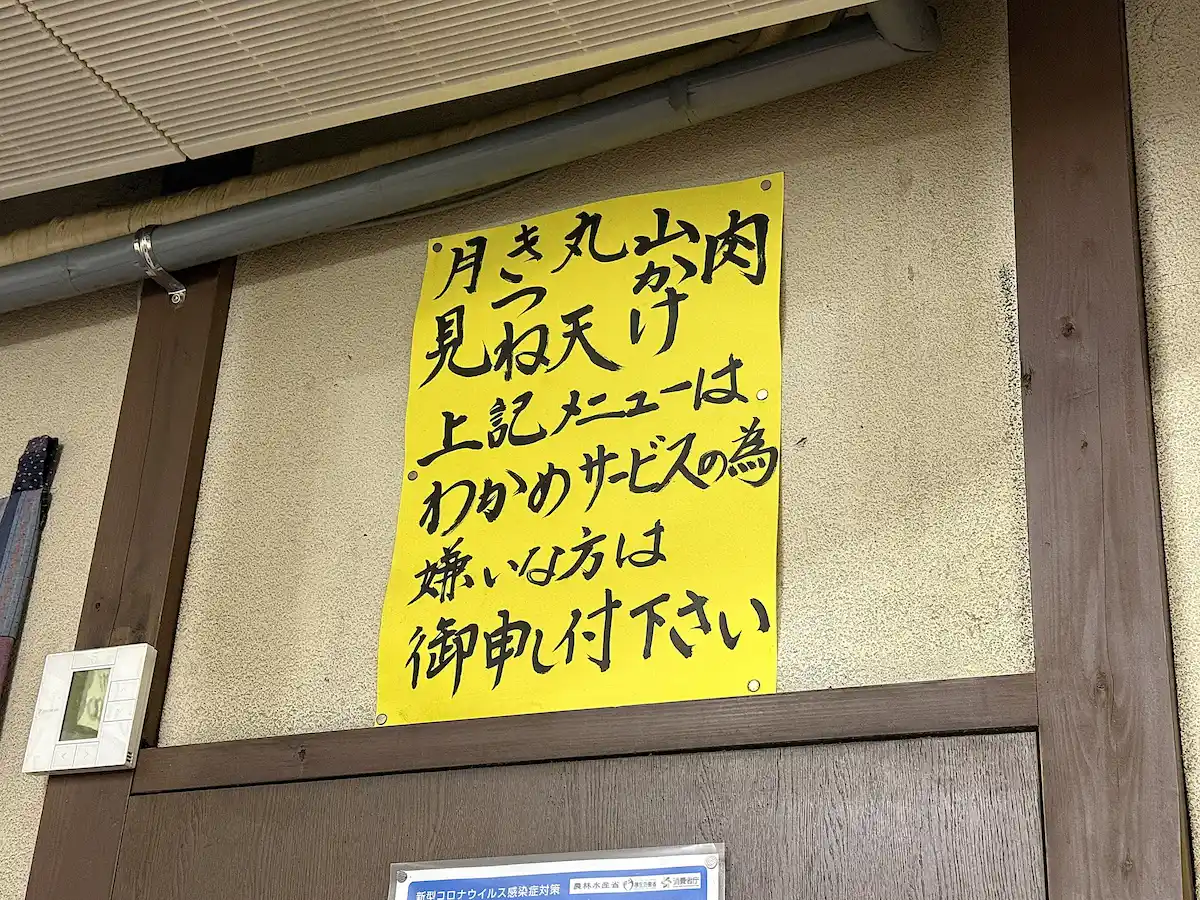 肉
山かけ
丸天
きつね
月見
上記メニューは
わかめサービスの為
嫌いな方は
御申し付下さい
新型コロナウイルス感染症対策
農林水産省 厚生労働省 消費者庁